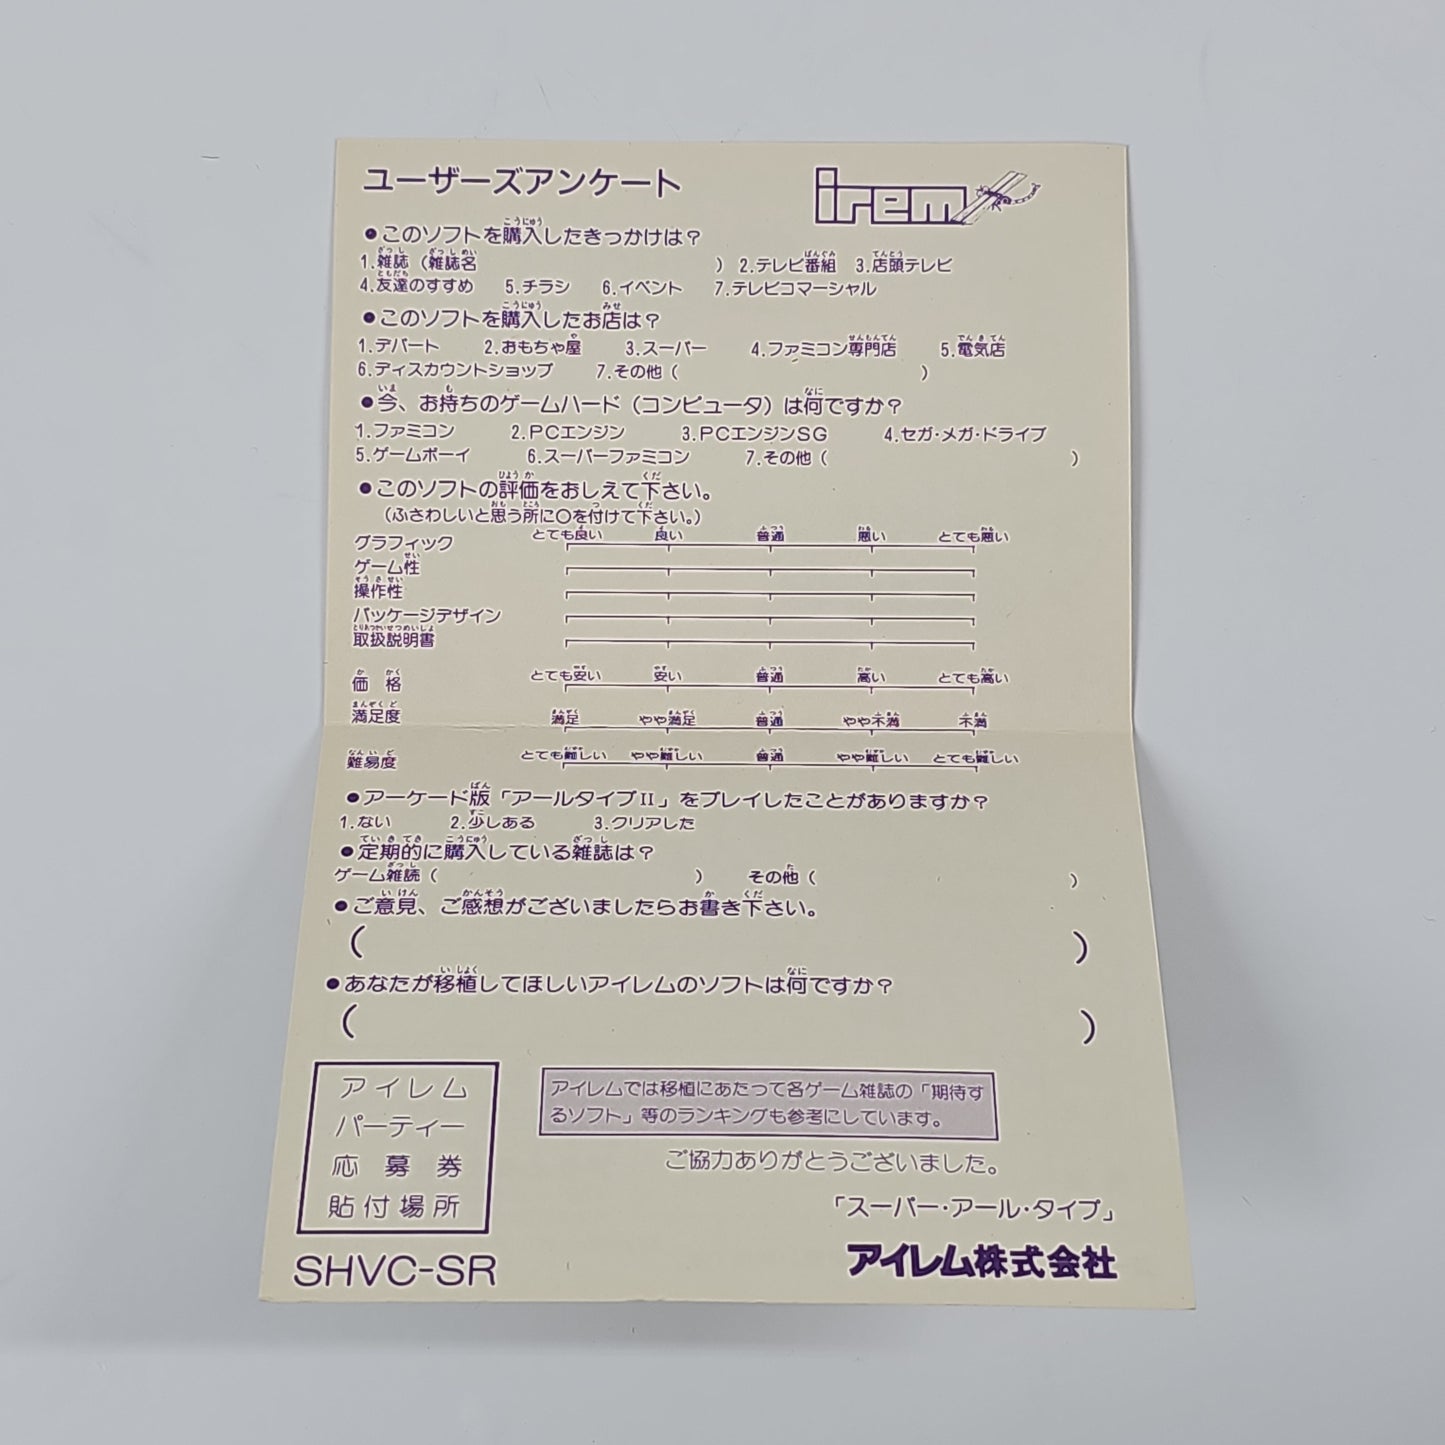 ユーザーズアンケート
irem
●このソフトを購入したきっかけは？
1.雑誌（雑誌名　　　）　2.テレビ番組　3.店頭テレビ
4.友達のすすめ　5.チラシ　6.イベント　7.テレビコマーシャル
●このソフトを購入したお店は？
1.デパート　2.おもちゃ屋　3.スーパー　4.ファミコン専門店　5.電気店
6.ディスカウントショップ　7.その他（　　　）
●今、お持ちのゲームハード（コンピュータ）は何ですか？
1.ファミコン　2.PCエンジン　3.PCエンジンSG　4.セガ・メガ・ドライブ
5.ゲームボーイ　6.スーパーファミコン　7.その他（　　　）
●このソフトの評価をおしえて下さい。
（ふさわしいと思う所に○を付けて下さい。）
グラフィック　とても良い　良い　普通　悪い　とても悪い
ゲーム性
操作性
パッケージデザイン
取扱説明書
価格　とても安い　安い　普通　高い　とても高い
満足度　満足　やや満足　普通　やや不満　不満
難易度　とても難しい　やや難しい　普通　やや難しい　とても難しい
●アーケード版「アールタイプII」をプレイしたことがありますか？
1.ない　2.少しある　3.クリアした
●定期的に購入している雑誌は？
ゲーム雑読（　　　）　その他（　　　）
●ご意見、ご感想がございましたらお書き下さい。
（　　　）
●あなたが移植してほしいアイレムのソフトは何ですか？
（　　　）
アイレム
パーティー
応募券
貼付場所
アイレムでは移植にあたって各ゲーム雑誌の「期待す
るソフト」等のランキングも参考にしています。
ご協力ありがとうございました。
「スーパー・アール・タイプ」
SHVC-SR
アイレム株式会社